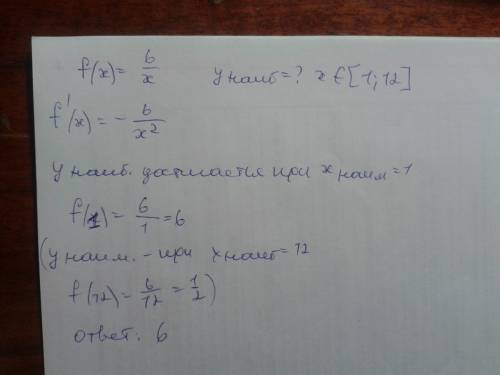 f(x) = 6/x    у наиб = ? x ∈ [1; 12]
f'(x) = - 6/x²
У наиб. достигается при x наим = 1
f(1) = 6/1 = 6
(у наим. - при x наиб = 12
f(12) = 6/12 = 1/2)
ответ: 6